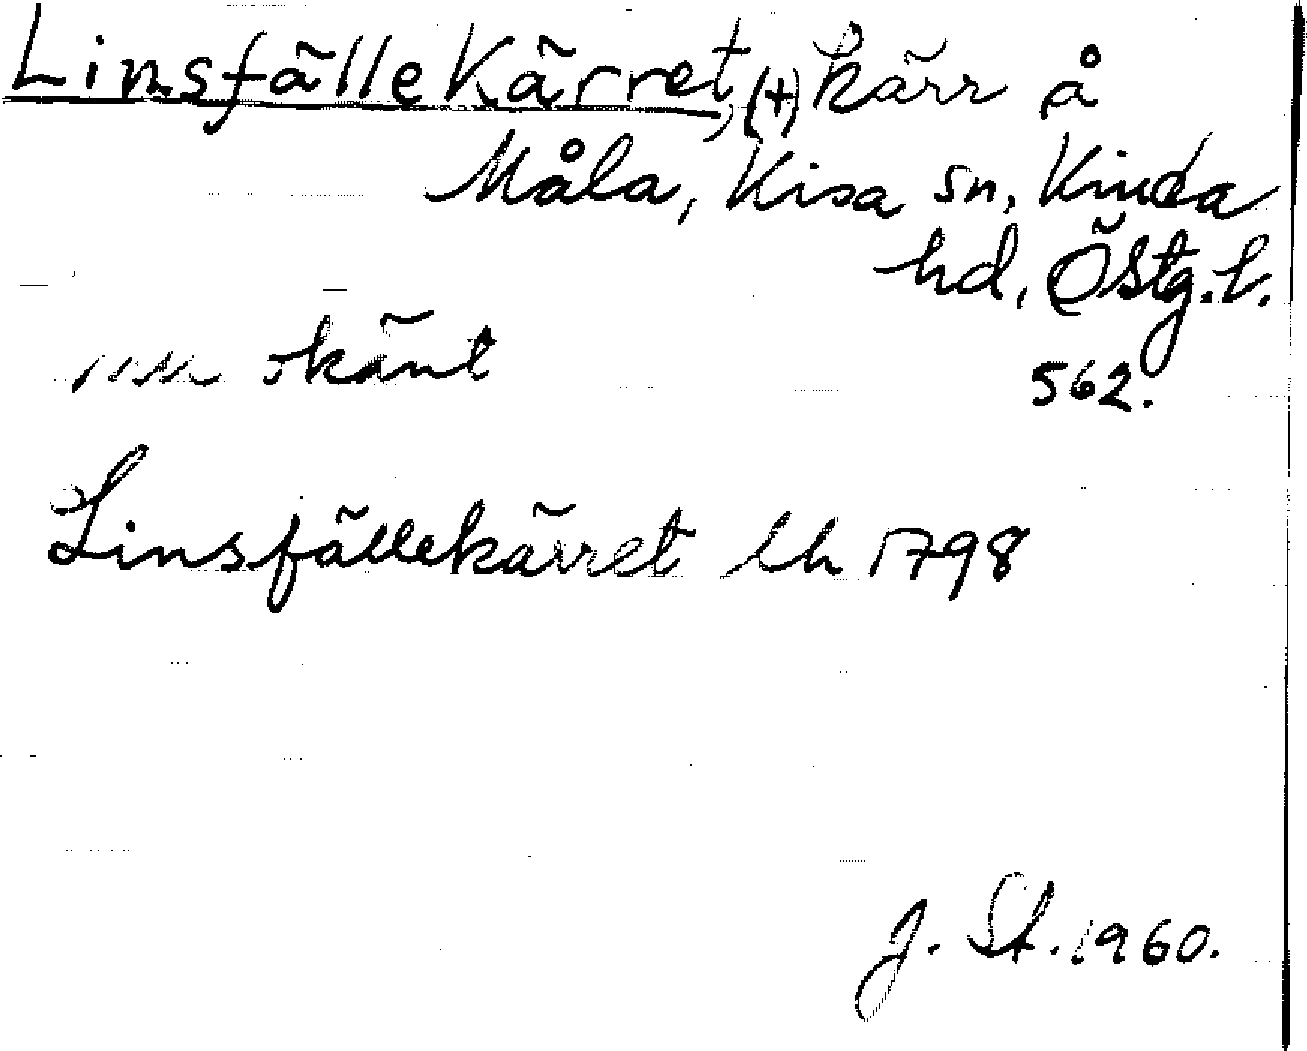 Linsfällekärret, (+) kärr å
Måla, Kisa sn, Kinda
hd, Östg. l.
okänt
562.
Linsfällekärret lh 1798
J. St. 1960.